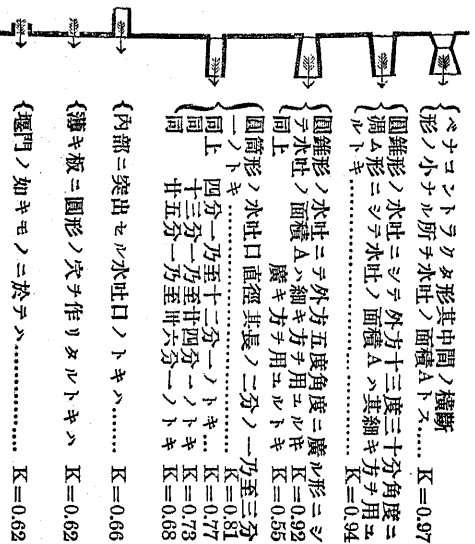 ベナコントラクタ形其中間ノ横斷
形ノ小ナル所ヲ水吐ノ面積Aトス…… K=0.97
圓錐形ノ水吐ニシテ外方十三度三十分角度ニ
凋ム形ニシテ水吐ノ面積Aハ其細キ方ヲ用ユ
ルトキ……………… K=0.94
圓錐形ノ水吐ニテ外方五度角度ニ廣ル形ニシ
テ水吐ノ面積Aハ細キ方ヲ用ユル時 K=0.92
同上 廣キ方ヲ用ユルトキ K=0.55
圓筒形ノ水吐口直徑其長ノ二分ノ一乃至三分
一ノトキ……………… K=0.81
同上 四分一乃至十二分一ノトキ… K=0.77
同 十三分一乃至廿四分一ノトキ K=0.73
同 廿五分一乃至卅六分一ノトキ K=0.68
內部ニ突出セル水吐口ノトキハ…… K=0.66
薄キ板ニ圓形ノ穴ヲ作リタルトキハ K=0.62
堰門ノ如キモノニ於テハ………… K=0.62